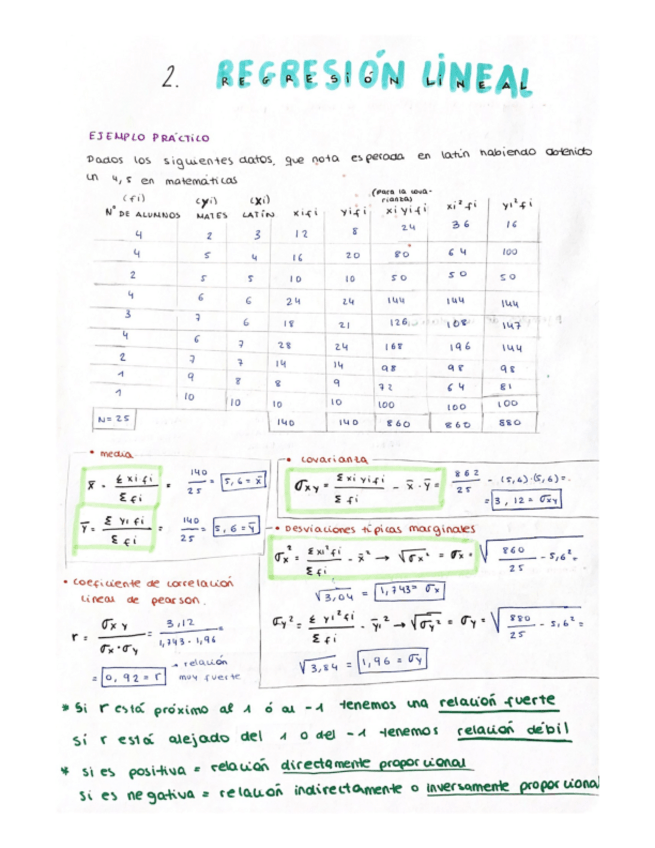 2. REGRESIÓN LINEAL
EJEMPLO PRÁCTICO
Dados los siguientes datos, que nota esperada en latín habiendo obtenido
un 4,5 en matemáticas
(fi) (yi) (xi) (para la cova-
rianza)
Nº DE ALUMNOS MATES LATÍN xifi yifi xi yifi xi²fi yi²fi
4 2 3 12 8 24 36 16
4 5 4 16 20 80 64 100
2 5 5 10 10 50 50 50
4 6 6 24 24 144 144 144
3 7 6 18 21 126 108 147
4 6 7 28 24 168 196 144
2 7 7 14 14 98 98 98
1 9 8 8 9 72 64 81
1 10 10 10 10 100 100 100
N=25 140 140 860 860 880
• media
x̄ = Σxifi / Σfi = 140/25 = 5,6 = x̄
ȳ = Σyifi / Σfi = 140/25 = 5,6 = ȳ
• covarianza
σxy = Σxiyifi / Σfi - x̄·ȳ = 862/25 - (5,6)·(5,6) =
= 3,12 = σxy
• Desviaciones típicas marginales
σx² = Σxi²fi / Σfi - x̄² → √σx² = σx = √860/25 - 5,6² =
√3,04 = 1,743 = σx
σy² = Σyi²fi / Σfi - ȳ² → √σy² = σy = √880/25 - 5,6² =
√3,84 = 1,96 = σy
• coeficiente de correlación
lineal de pearson.
r = σxy / σx·σy = 3,12 / 1,743·1,96 =
= 0,92 = r → relación
muy fuerte
* Si r está próximo al 1 ó al -1 tenemos una relación fuerte
sí r está alejado del 1 o del -1 tenemos relación débil
* si es positiva = relación directamente proporcional
si es negativa = relación indirectamente o inversamente proporciona